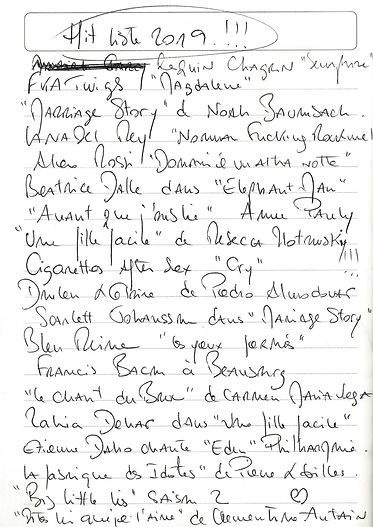 Hit liste 2019.!!!
Requin Chagrin "Semaphore"
FKA Twigs "Magdalene"
"Marriage Story" de Noah Baumbach.
Lana Del Rey "Norman Fucking Rockwell
Alex Rossi "Domani è un'altra notte"
Beatrice Dalle dans "Elephant Man"
"Avant que j'oublie" Anne Pauly
"Une fille facile" de Rebecca Zlotowski
Cigarettes After Sex "Cry" !!!
Douleur & Gloire de Pedro Almodovar
Scarlett Johansson dans "Mariage Story"
Bleu Reine "Les yeux fermés"
Francis Bacon à Beaubourg
"Le chant du Bouc" de Carmen Maria Vega
Zahia Dehar dans "Une fille facile"
Etienne Daho chante "Eden" Philharmonie.
La fabrique des Idiotes" de Pierre & Gilles.
"Big little lies" Saison 2 ♡
"Dites lui que je l'aime" de Clementine Autain